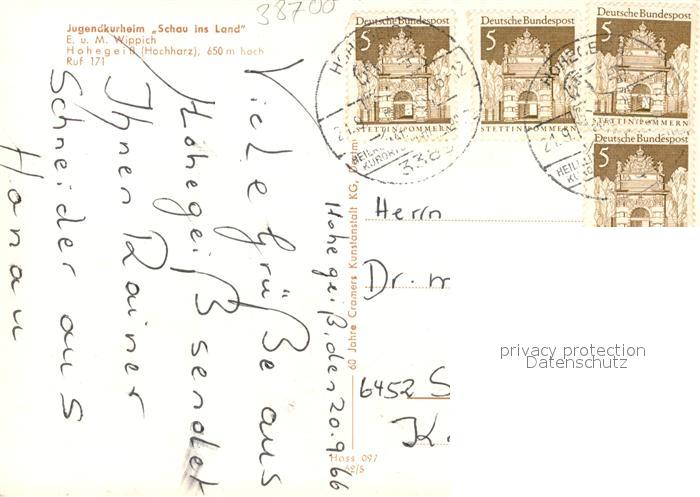 38700
Jugendkurheim „Schau ins Land"
E. u. M. Wippich
Hohegeiß (Hochharz), 650 m hoch
Ruf 171
Hohegeiß, den 20.9.66
Viele Grüße aus
Hohegeiß sendet
Ihnen Rainer
Schneider aus
Hanau
60 Jahre Cramers Kunstanstalt KG, Dortm
Hoss 097
62/5
Deutsche Bundespost
5
STETTIN/POMMERN
Deutsche Bundespost
5
STETTIN/POMMERN
Deutsche Bundespost
5
STETTIN/POMMERN
Deutsche Bundespost
5
Herrn
Dr. m
6452 S
K.
privacy protection
Datenschutz